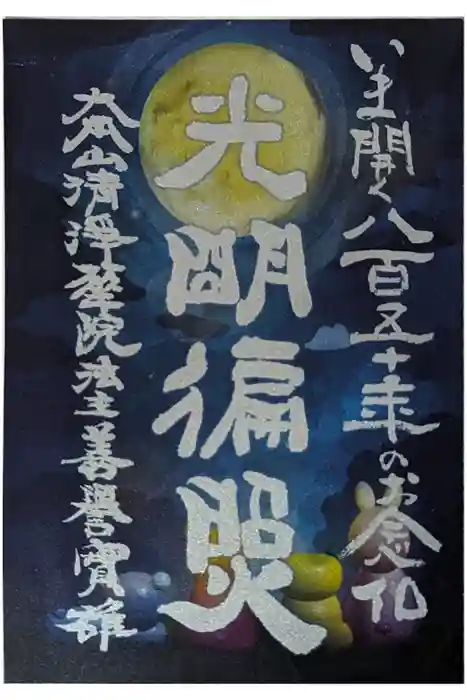 いま開く八百五十年のお念仏
光明徧照
大本山清浄華院法主善譽寳雄